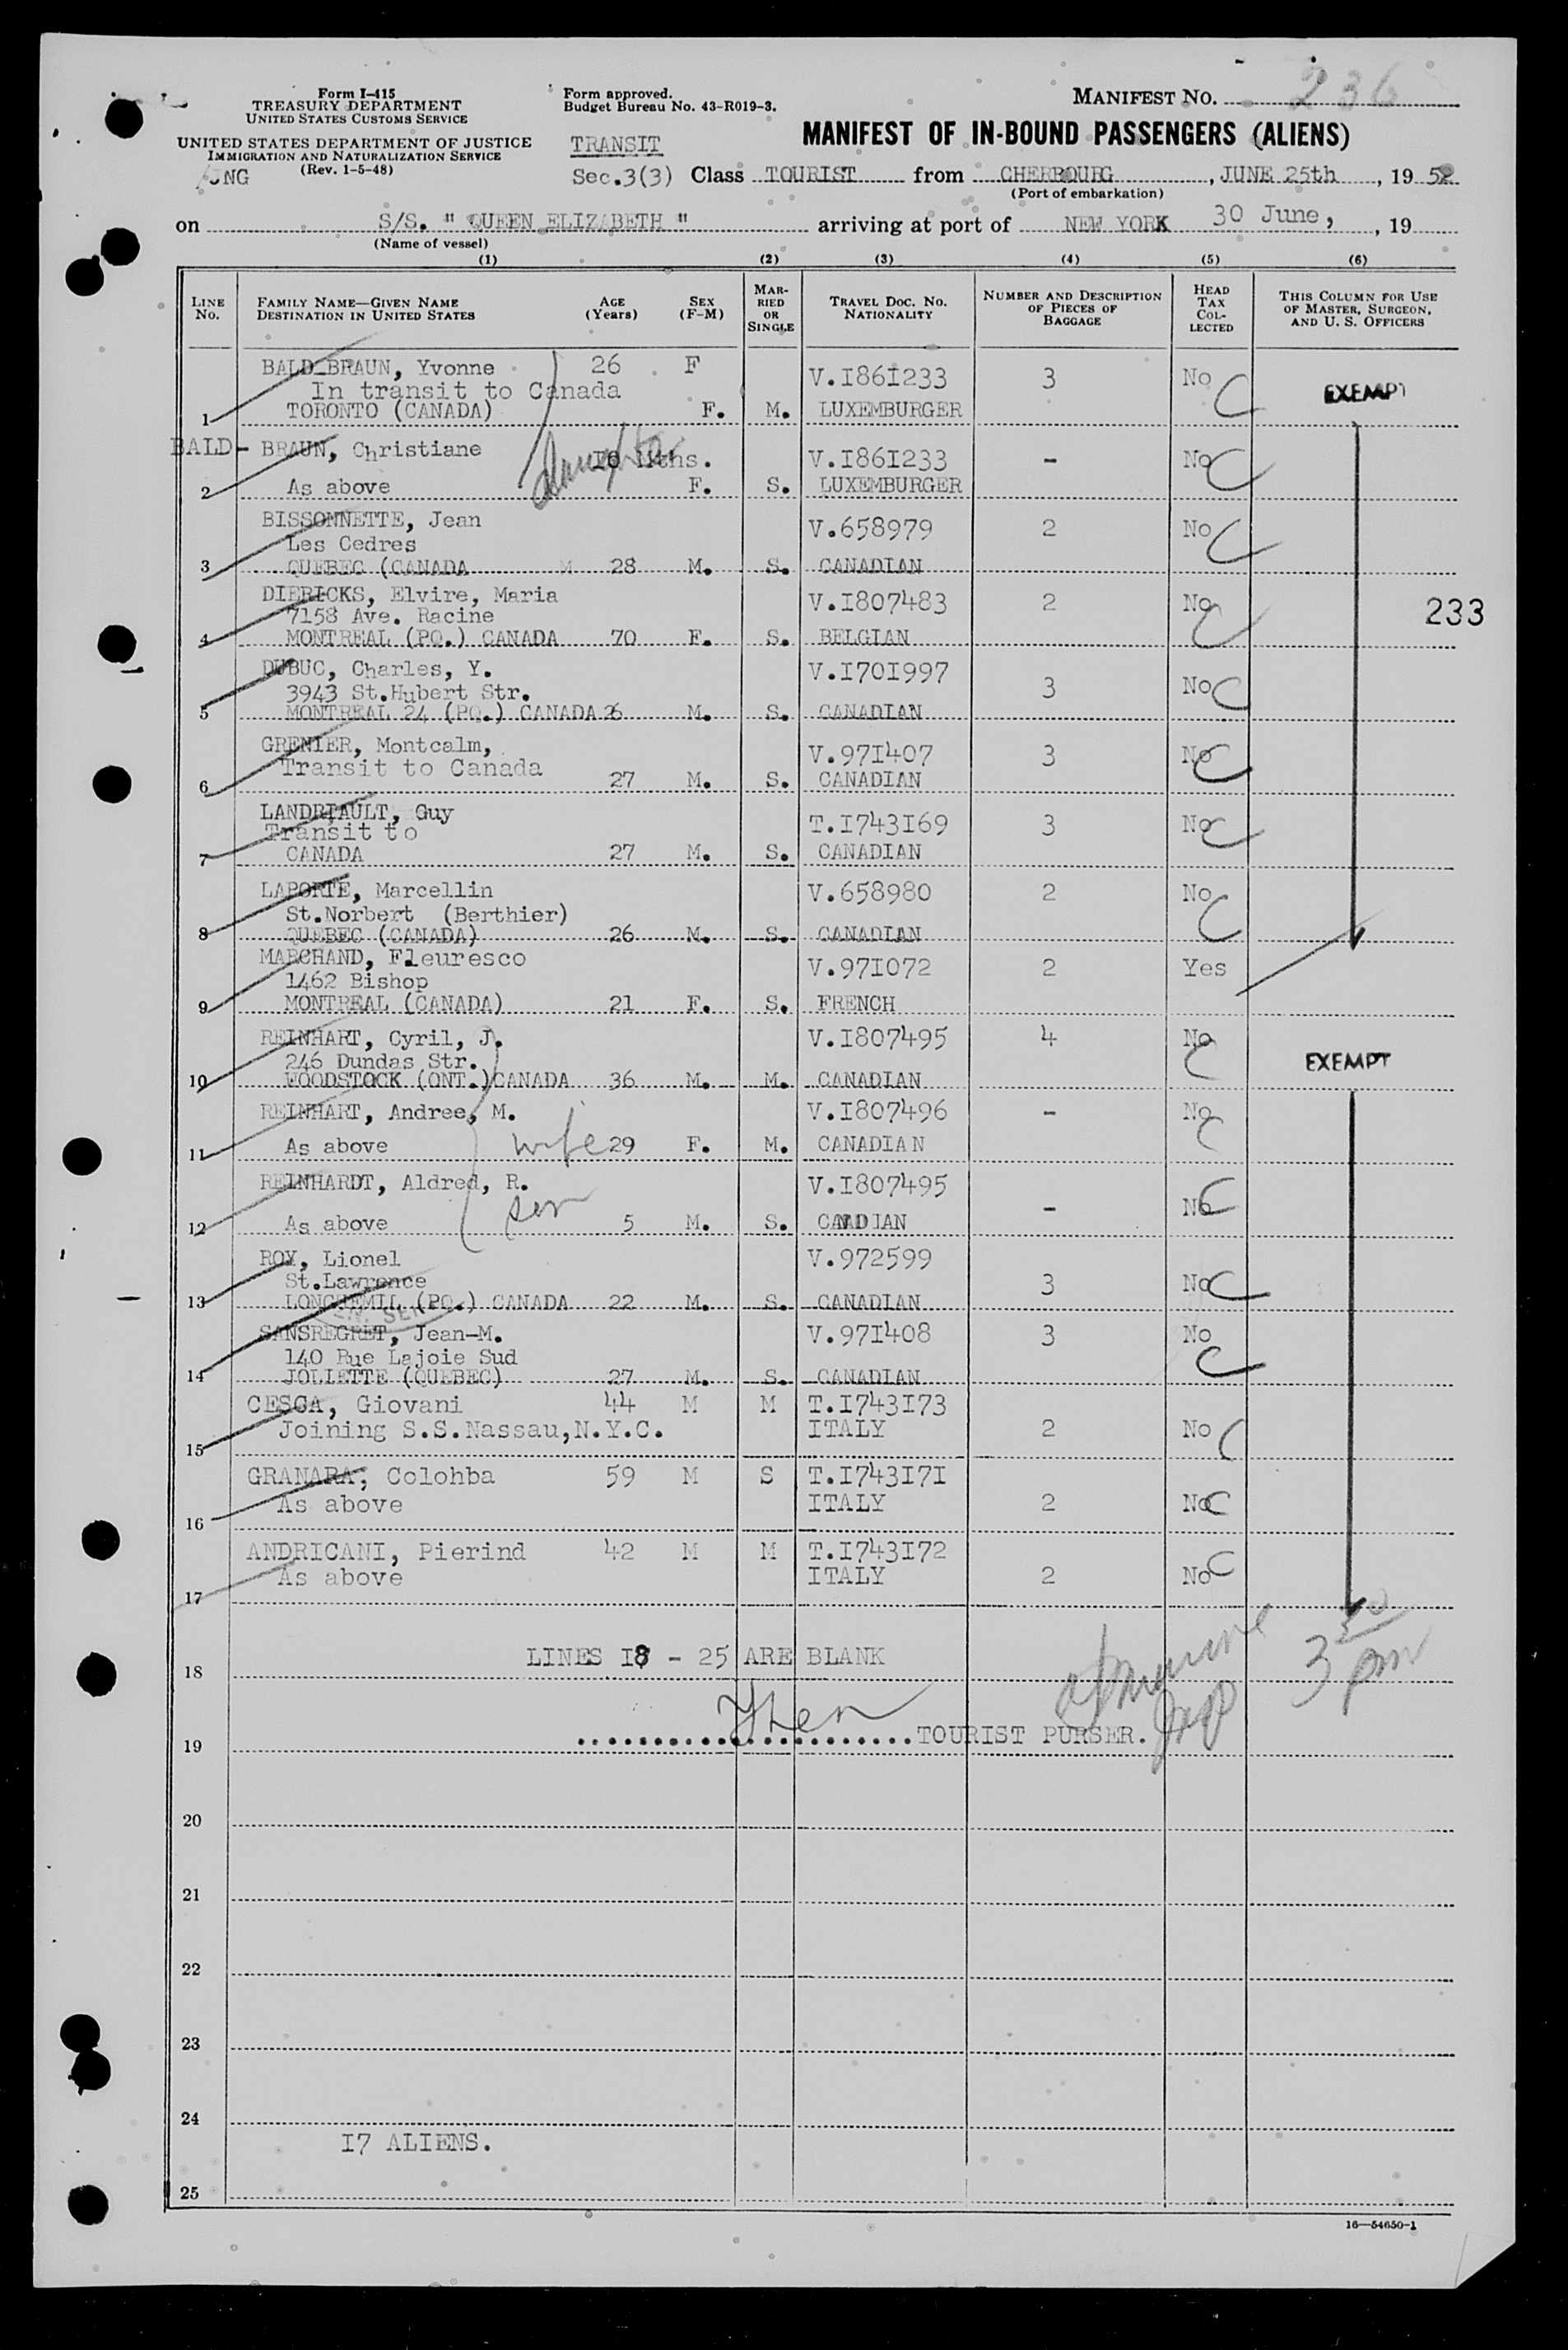 Form I-415
TREASURY DEPARTMENT
UNITED STATES CUSTOMS SERVICE
UNITED STATES DEPARTMENT OF JUSTICE
IMMIGRATION AND NATURALIZATION SERVICE
(Rev. 1-5-48)
Form approved.
Budget Bureau No. 43-R019-3.
MANIFEST NO. 236
TRANSIT
Sec.3(3)
MANIFEST OF IN-BOUND PASSENGERS (ALIENS)
Class TOURIST from CHERBOURG, JUNE 25th, 1952
(Port of embarkation)
on S/S. " QUEEN ELIZABETH " arriving at port of NEW YORK 30 June, , 19
(Name of vessel)
(1) (2) (3) (4) (5) (6)
LINE No. FAMILY NAME—GIVEN NAME DESTINATION IN UNITED STATES AGE (Years) SEX (F-M) MARRIED OR SINGLE TRAVEL DOC. NO. NATIONALITY NUMBER AND DESCRIPTION OF PIECES OF BAGGAGE HEAD TAX COLLECTED THIS COLUMN FOR USE OF MASTER, SURGEON, AND U. S. OFFICERS
BALD-BRAUN, Yvonne 26 F V.I861233 3 No C EXEMPT
In transit to Canada
1 TORONTO (CANADA) F. M. LUXEMBURGER
BALD- BRAUN, Christiane daughter 10 Mths. V.I861233 - No C
2 As above F. S. LUXEMBURGER
BISSONNETTE, Jean V.658979 2 No C
Les Cedres
3 QUEBEC (CANADA M 28 M. S. CANADIAN
DIERICKS, Elvire, Maria V.I807483 2 No C 233
7158 Ave. Racine
4 MONTREAL (PQ.) CANADA 70 F. S. BELGIAN
DUBUC, Charles, Y. V.I70I997 3 No C
3943 St.Hubert Str.
5 MONTREAL 24 (PQ.) CANADA 26 M. S. CANADIAN
GRENIER, Montcalm, V.97I407 3 No C
Transit to Canada
6 27 M. S. CANADIAN
LANDRIAULT, Guy T.I743I69 3 No C
Transit to
7 CANADA 27 M. S. CANADIAN
LAPORTE, Marcellin V.658980 2 No C
St.Norbert (Berthier)
8 QUEBEC (CANADA) 26 M. S. CANADIAN
MARCHAND, Fleuresco V.97I072 2 Yes
1462 Bishop
9 MONTREAL (CANADA) 21 F. S. FRENCH
REINHART, Cyril, J. V.I807495 4 No C EXEMPT
246 Dundas Str.
10 WOODSTOCK (ONT.) CANADA 36 M. M. CANADIAN
REINHART, Andree, M. V.I807496 - No C
11 As above wife 29 F. M. CANADIAN
REINHARDT, Aldred, R. V.I807495 - No C
son
12 As above 5 M. S. CANADIAN
ROY, Lionel V.972599 3 No C
St.Lawrence
13 LONGUEMIL (PQ.) CANADA 22 M. S. CANADIAN
SANSREGRET, Jean-M. V.97I408 3 No C
140 Rue Lajoie Sud
14 JOLIETTE (QUEBEC) 27 M. S. CANADIAN
CESCA, Giovani 44 M M T.I743I73
15 Joining S.S.Nassau,N.Y.C. ITALY 2 No C
GRANARA, Colohba 59 M S T.I743I7I
16 As above ITALY 2 No C
ANDRICANI, Pierind 42 M M T.I743I72
17 As above ITALY 2 No C
18 LINES I8 - 25 ARE BLANK 3 30 pm
19 TOURIST PURSER.
20
21
22
23
24
17 ALIENS.
25
16—54650-1